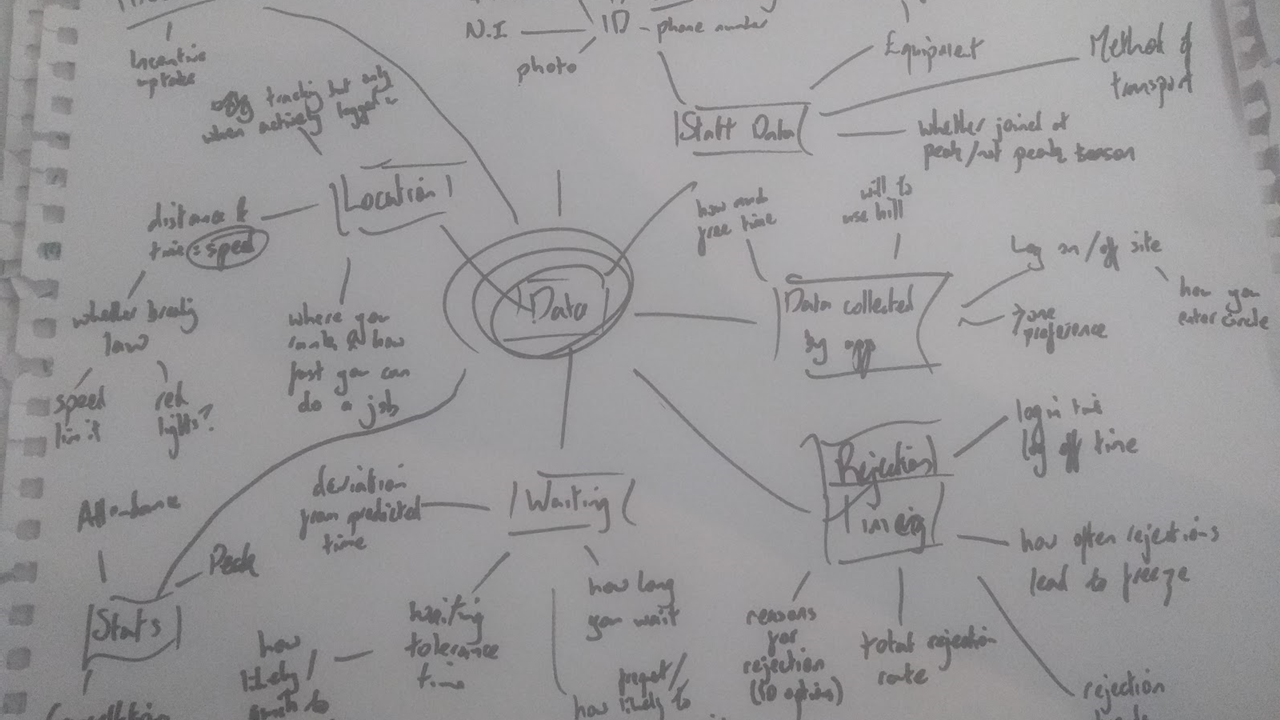 Incentive
uptake
N.I
ID
phone number
photo
Equipment
Method of
transport
|Staff Data|
whether joined at
peak/not peak season
tracking but only
when actively logged
Location
distance &
time = speed
whether breaking
law
speed
limit
red
lights?
where you
& how
fast you can
do a job
Data
how much
free time
will to
use hill
Data collected
by app
Log on/off site
how you
enter circle
zone
preference
Rejection
Timeing
log in time
log off time
how often rejections
lead to freeze
reasons
for
rejection
(10 options)
total rejection
rate
rejection
Waiting
deviation
from predicted
time
waiting
tolerance
time
how
likely/
how long
you wait
how likely to
Attendance
Peak
Stats